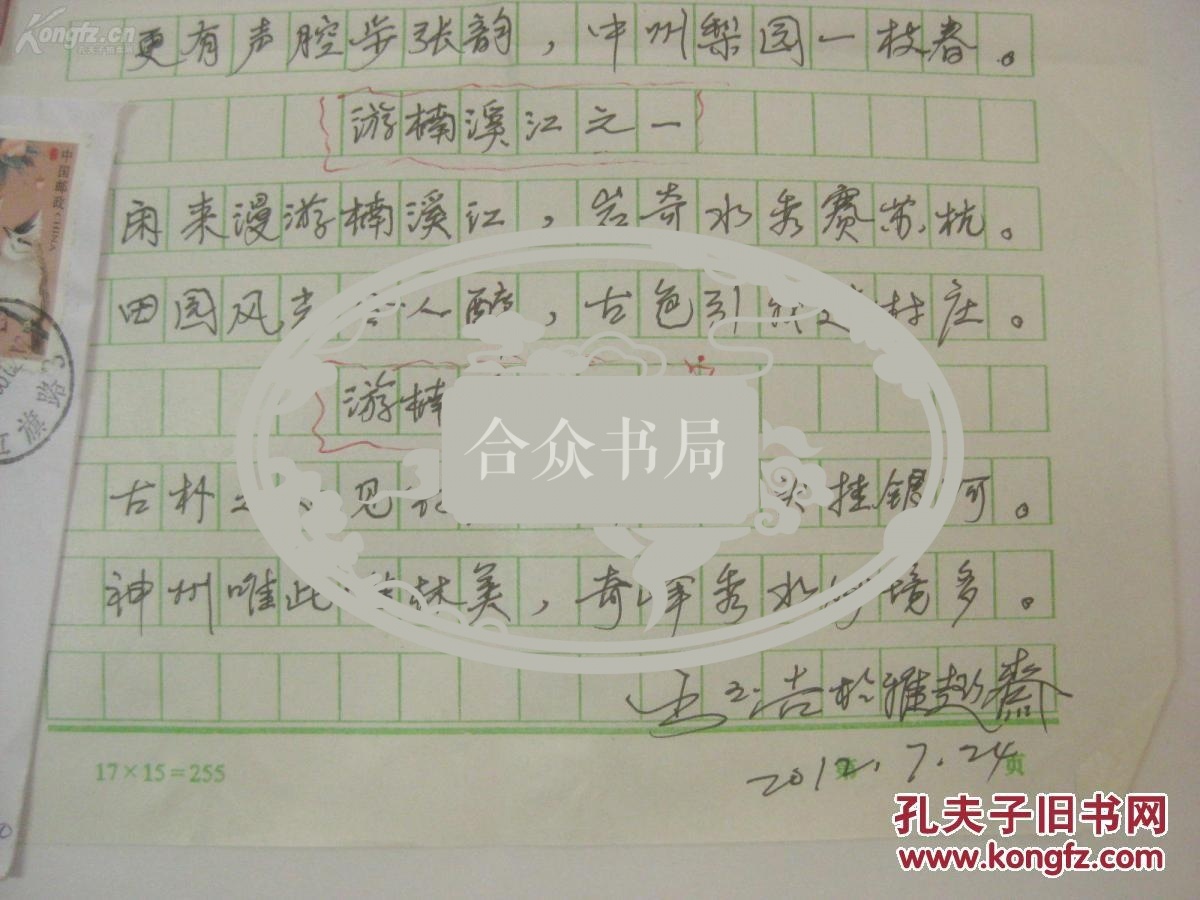 Kongfz.cn
孔夫子旧书网
更有声腔步张韵，中州梨园一枝春。
游楠溪江之一
闲来漫游楠溪江，岩奇水秀赛苏杭。
田园风光令人醉，古色引村庄。
游楠
古朴见挂银河。
神州唯此美，奇峰秀水境多。
于雅趣斋
2012.7.24
17×15=255
第 页
中国邮政 CHINA
红旗路
合众书局
孔夫子旧书网
www.kongfz.com